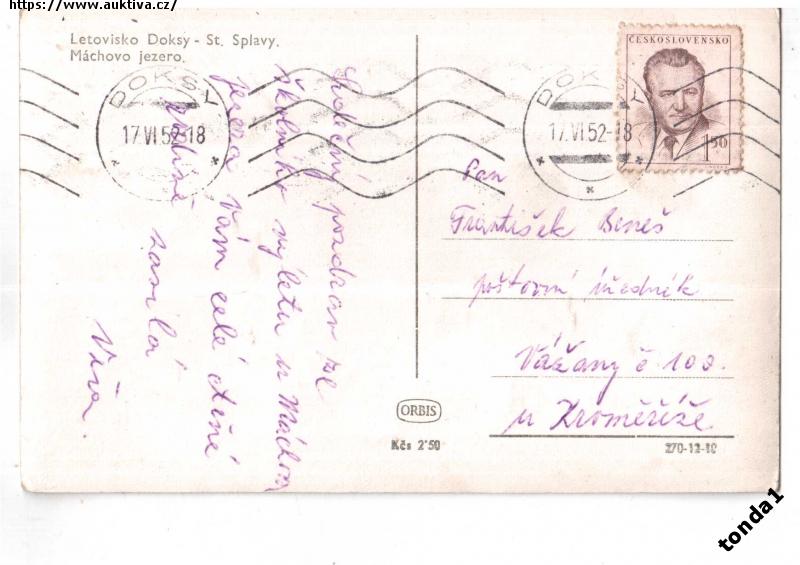 https://www.auktiva.cz/
Letovisko Doksy - St. Splavy.
Máchovo jezero.
DOKSY
17.VI.52-18
DOKSY
17.VI.52-18
ČESKOSLOVENSKO
1.50
Srdečný pozdrav ze
školního výletu u Máchova
jezera Vám celé ctěné
rodině zasílá
Věra.
Pan
František Beneš
poštovní úředník
Vážany č 100.
u Kroměříže
ORBIS
Kčs 2'50
270-12-10
tonda1